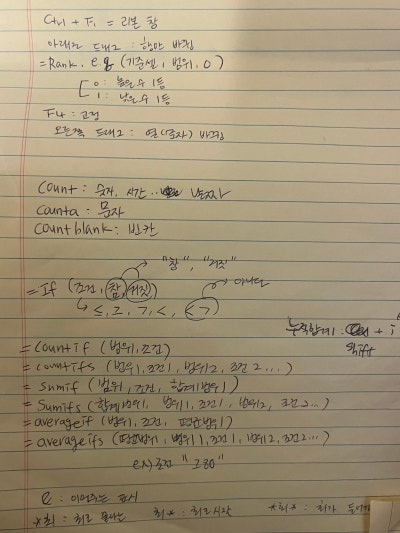 Ctrl + F1 = 리본 창
아래로 드래그 : 행만 바뀜
= Rank. eq (기준셀, 범위, 0)
0 : 높은수 1등
1 : 낮은수 1등
F4 : 고정
오른쪽 드래그 : 열(문자) 바뀜
Count : 숫자, 시간 ..
Counta : 문자
Countblank : 빈칸
"참", "거짓"
= If (조건, 참, 거짓) 아니다
≤, ≥, >, <, <>
누적합계 :
= Countif (범위, 조건)
= countifs (범위1, 조건1, 범위2, 조건2 ...)
= sumif (범위, 조건, 합계범위)
= Sumifs (합계범위, 범위1, 조건1, 범위2, 조건2...)
= averageif (범위, 조건, 평균범위)
= averageifs (평균범위, 범위1, 조건1, 범위2, 조건2...)
ex) 조건
& : 이어주는 표시
*희 : 희로 끝나는 희* : 희로시작 *희* : 희가